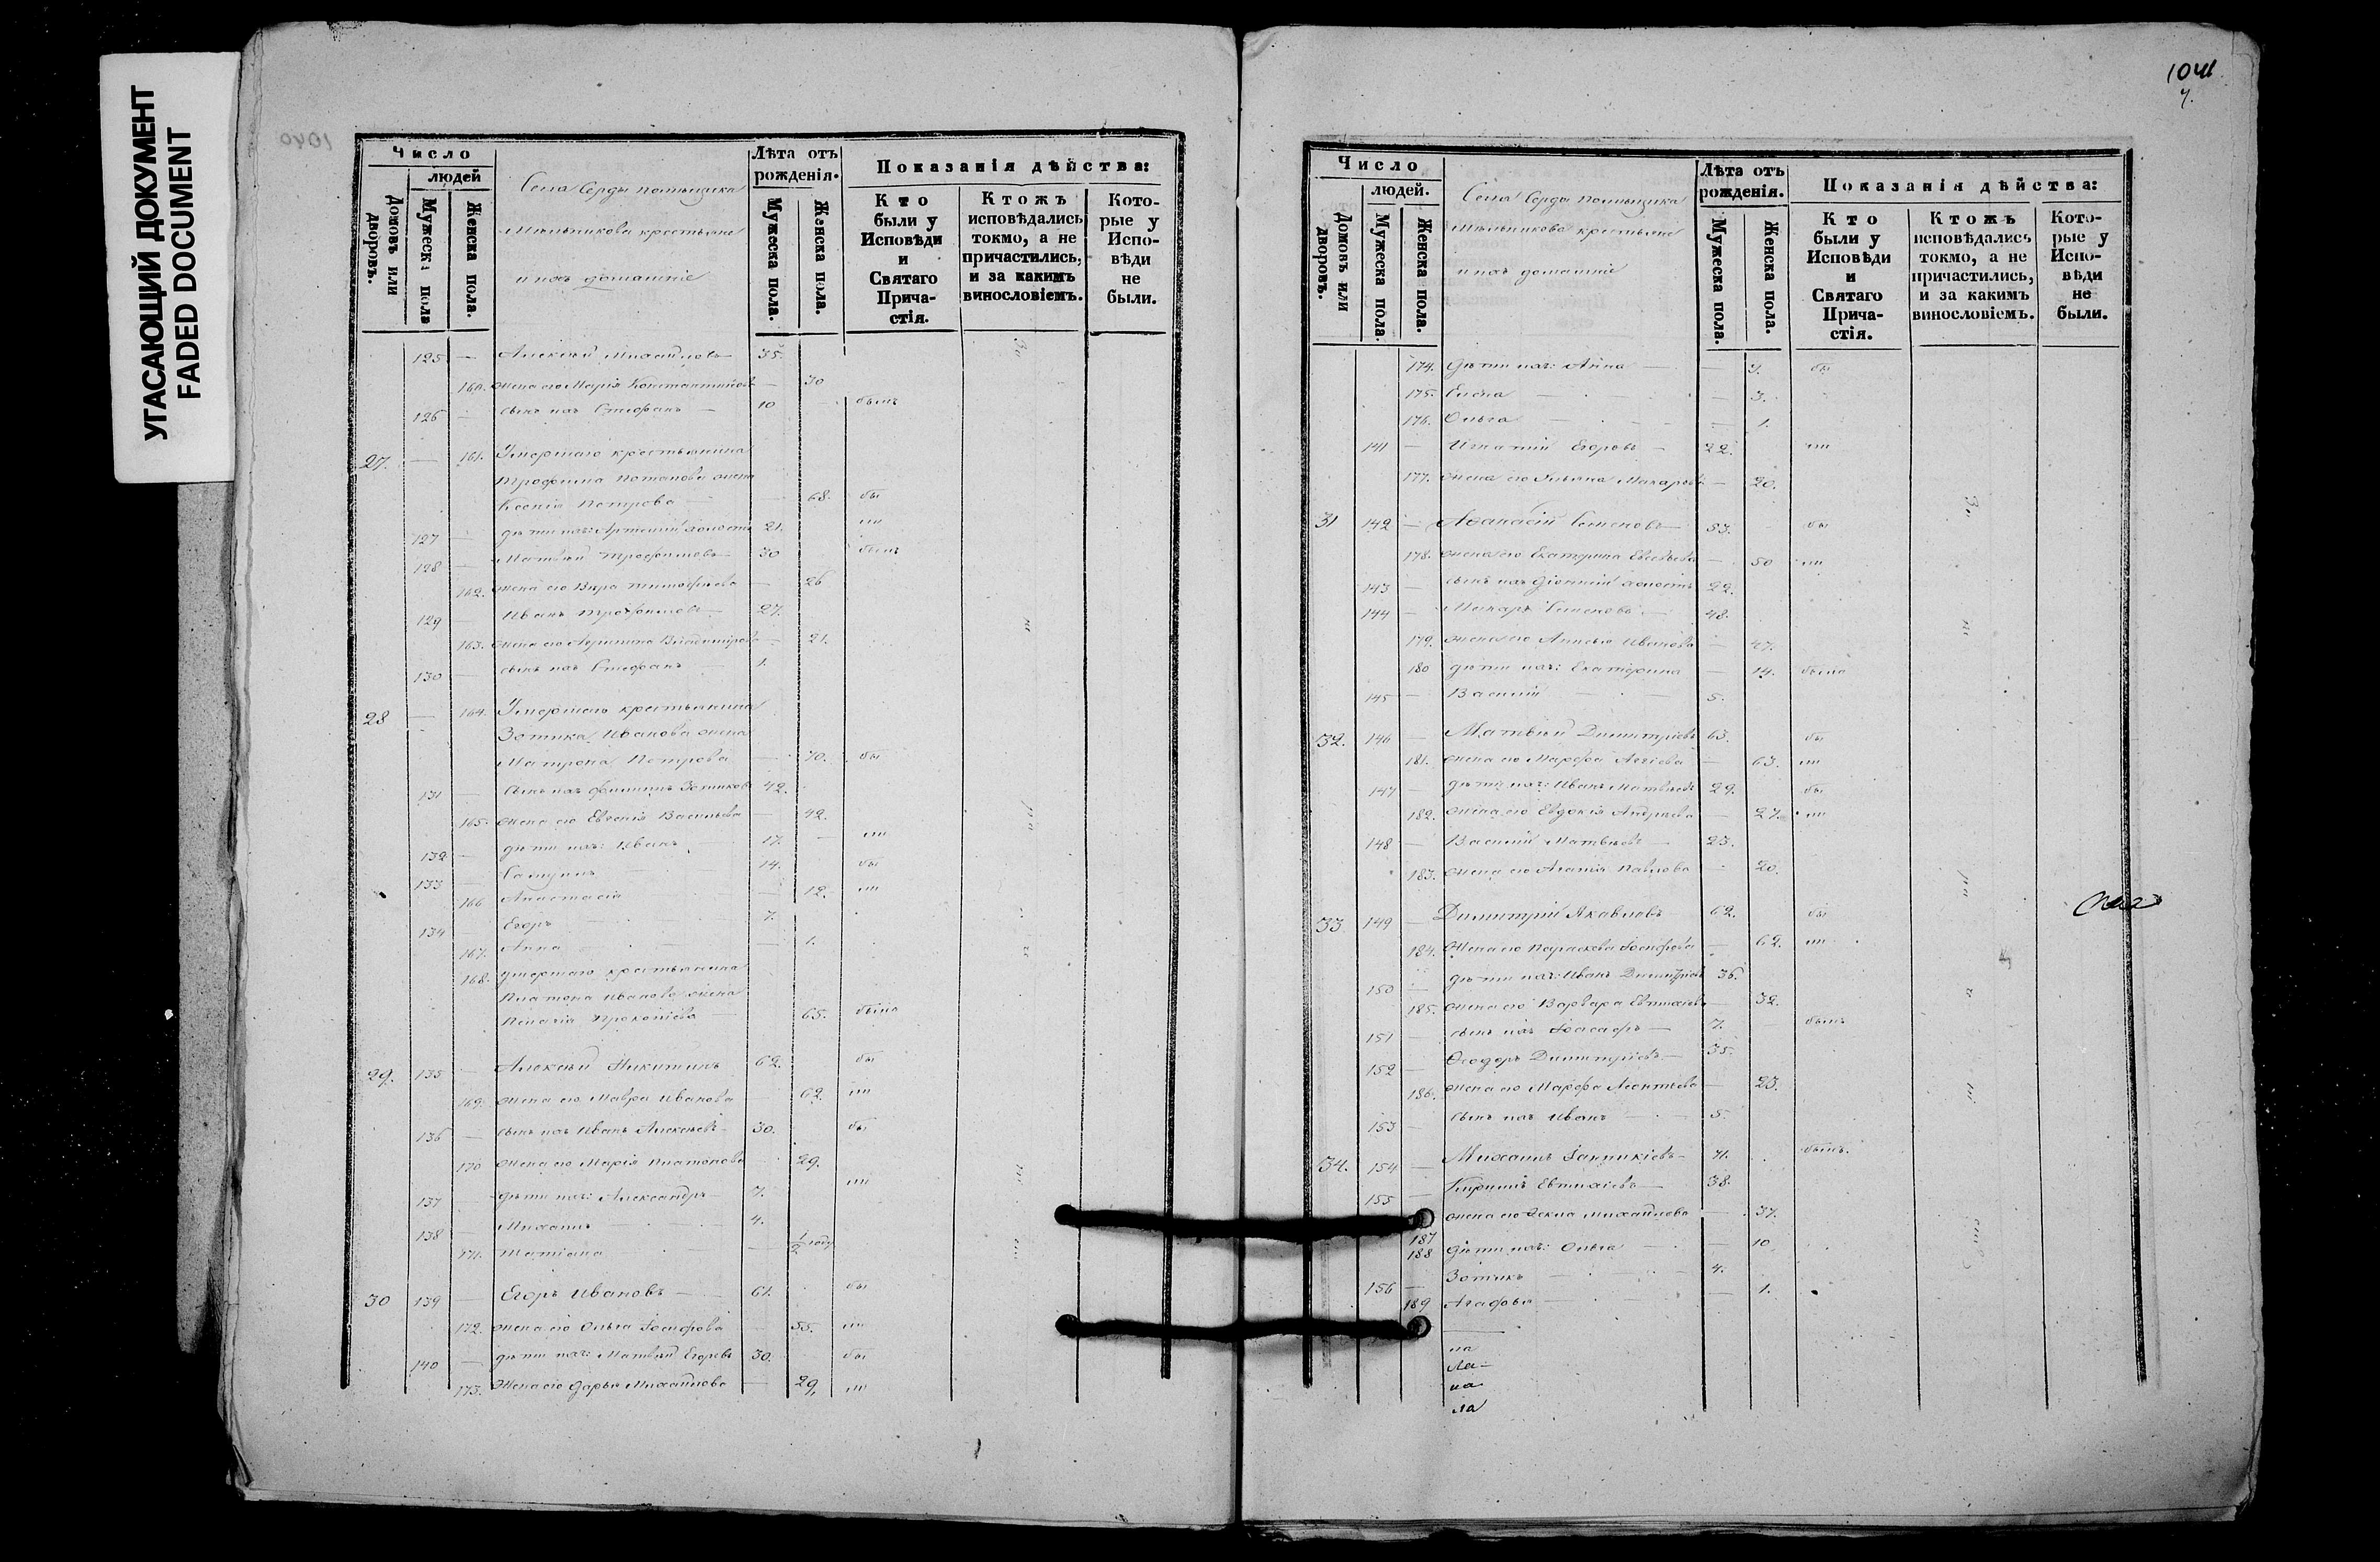 УГАСАЮЩИЙ ДОКУМЕНТ
FADED DOCUMENT
1040
Число
людей
Домовъ или дворовъ.
Мужеска полъ
Женска пола.
Села Серды помѣщика
Мельникова крестьяне
и ихъ домашніе
Лѣта отъ рожденія.
Мужеска пола.
Женска пола.
Показанія дѣйства:
Кто были у Исповѣди и Святаго Прича-стія.
Ктожъ исповѣдались токмо, а не причастились, и за какимъ винословіемъ.
Кото-рые у Испо-вѣди не были.
125 — Алексѣй Михайловъ — 35.
160. жена его Марія Константинова — 30
126 — сынъ ихъ Стефанъ — 10 былъ
27. — 161. Умершаго крестьянина
Трофима Потапова жена
Ксенія Петрова — 68. бы
127 — дѣти ихъ: Артемій холостъ 21. ли
128 — Матвѣй Трофимовъ — 30 былъ
162. жена его Вѣра Тимофѣева — 26
129 — Иванъ Трофимовъ — 27.
163. жена его Агрипина Владимірова — 21.
130 — сынъ ихъ Стефанъ — 1.
28 — 164. Умершаго крестьянина
Зотика Иванова жена
Матрона Петрова — 70. бы
131 — сынъ ихъ Филиппъ Зотиковъ 42.
165. жена его Евгенія Васильева — 42.
132 — дѣти ихъ: Иванъ — 17. — ли
133 — 14. бы
166 Анастасія — 12. ли
134 — Егоръ 7.
167. Анна — 1.
168. умершаго крестьянина
Платона Иванова жена
Пелагія Прокопіева — 65. была
29. 135 — Алексѣй Никитинъ 62. бы
169. жена его Мавра Иванова 62. ли
136 — сынъ ихъ Иванъ Алексѣевъ 30. бы
170 жена его Марія Платонова — 29.
137 — дѣти ихъ: Александръ — 7. ли
138 — Михаилъ 4.
171. Татіана — 1/2 году
30 139 — Егоръ Ивановъ — 61. бы
172. жена его Ольга Іосифова 55. ли
140 — дѣти ихъ: Матвѣй Егоровъ 30. бы
173. Жена его Дарья Михайлова — 29. ли
1041
Число
людей.
Домовъ или дворовъ.
Мужеска пола.
Женска пола.
Села Серды помѣщика
Мельникова крестьяне
и ихъ домашніе
Лѣта отъ рожденія.
Мужеска пола.
Женска пола.
Показанія дѣйства:
Кто были у Исповѣди и Святаго Прича-стія.
Ктожъ исповѣдались токмо, а не причастились, и за какимъ винословіемъ.
Кото-рые у Испо-вѣди не были.
174. дѣти ихъ: Анна — 7. бы
175. Елена — 3.
176. Ольга — 1.
141 — Игнатій Егоровъ — 22. ли
177. жена его Ульяна Макарова — 20.
31 142 — Аѳанасій Семеновъ — 53. бы
178. жена его Екатерина Евсевьева — 50 ли
143 — сынъ ихъ Діонисій холостъ 22.
144 — Макаръ Семеновъ — 48.
179. жена его Анисья Иванова — 47.
180 дѣти ихъ: Екатерина — 14. была
145 — Василій — 5.
32. 146 — Матвѣй Димитріевъ 63. бы
181. жена его Марфа — 63. ли
147 — дѣти ихъ: Иванъ Матвѣевъ 29. бы
182. жена его Евдокія Андреева — 27. ли
148 — Василій Матвѣевъ — 23.
183. жена его Агапія Павлова — 20.
33 149 Димитрій Яковлевъ 62. бы
184. Жена его Параскева Іосифова — 62. ли
150 — дѣти ихъ: Иванъ Димитріевъ 36.
185. жена его Варвара Евтихіева — 32.
151 — сынъ ихъ Іоасафъ — 7. — былъ
152 — Ѳеодоръ Димитріевъ — 35.
186. жена его Марфа Леонтьева — 23.
153 — сынъ ихъ Иванъ — 5.
34. 154 — Михаилъ Іанникіевъ — 71. былъ.
155 — Кирилъ Евтихіевъ — 38.
187 жена его Ѳекла Михайлова — 37.
188 дѣти ихъ: Ольга — 10
156 — Зотикъ — 4.
189 Агафья — 1.